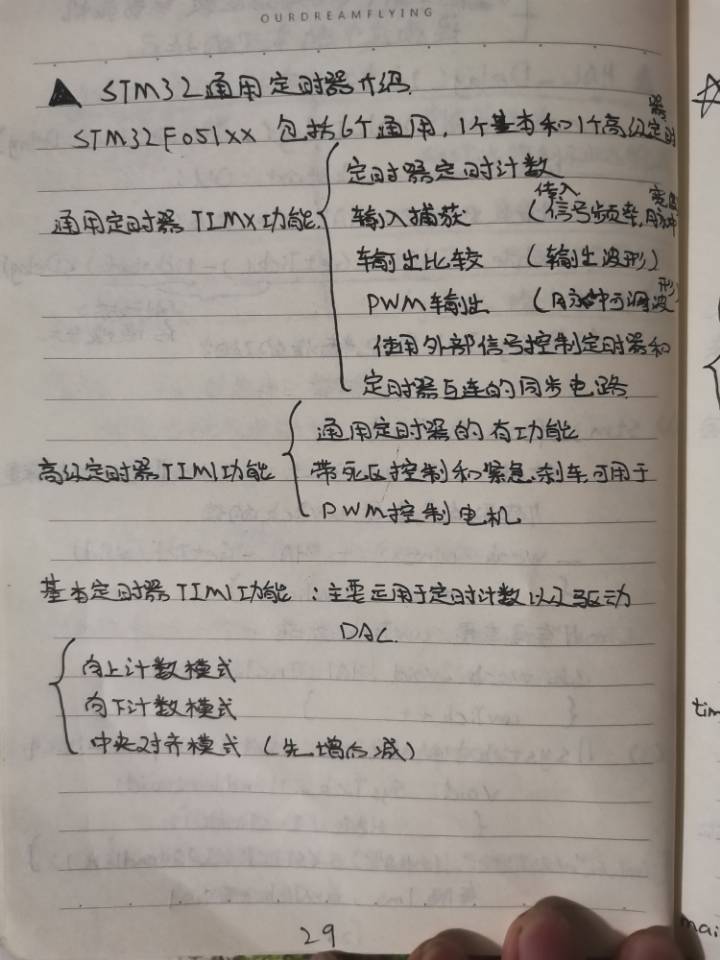 OURDREAMFLYING
▲ STM32通用定时器介绍.
STM32F051XX 包括6个通用,1个基本和1个高级定时器
定时器定时计数
通用定时器TIMX功能.
输入捕获 (传入信号频率,脉冲宽度
输出比较 (输出波形)
PWM输出 (脉冲可调波形)
使用外部信号控制定时器和
定时器互连的同步电路.
通用定时器的有功能
高级定时器TIM1功能
带死区控制和紧急刹车,可用于
PWM控制电机
基本定时器TIM1功能:主要运用于定时计数以及驱动
DAC.
向上计数模式
向下计数模式
中央对齐模式(先增后减)
29
tim
mai